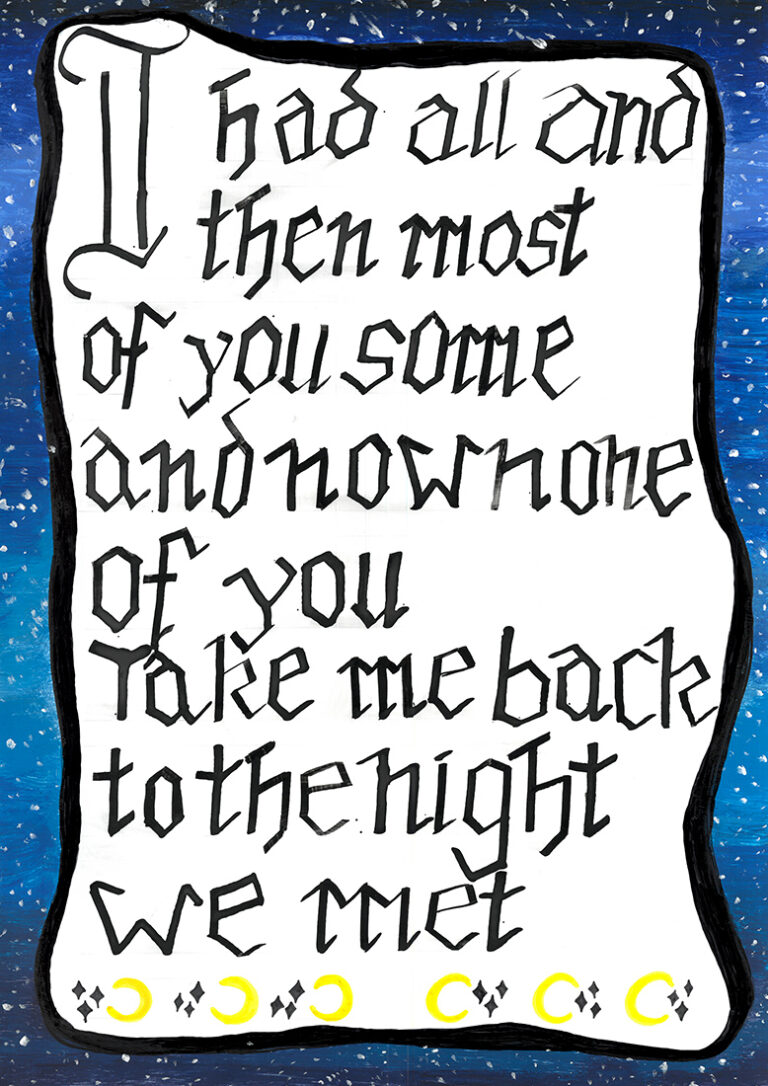 I had all and
then most
of you some
and now none
of you
Take me back
to the night
we met